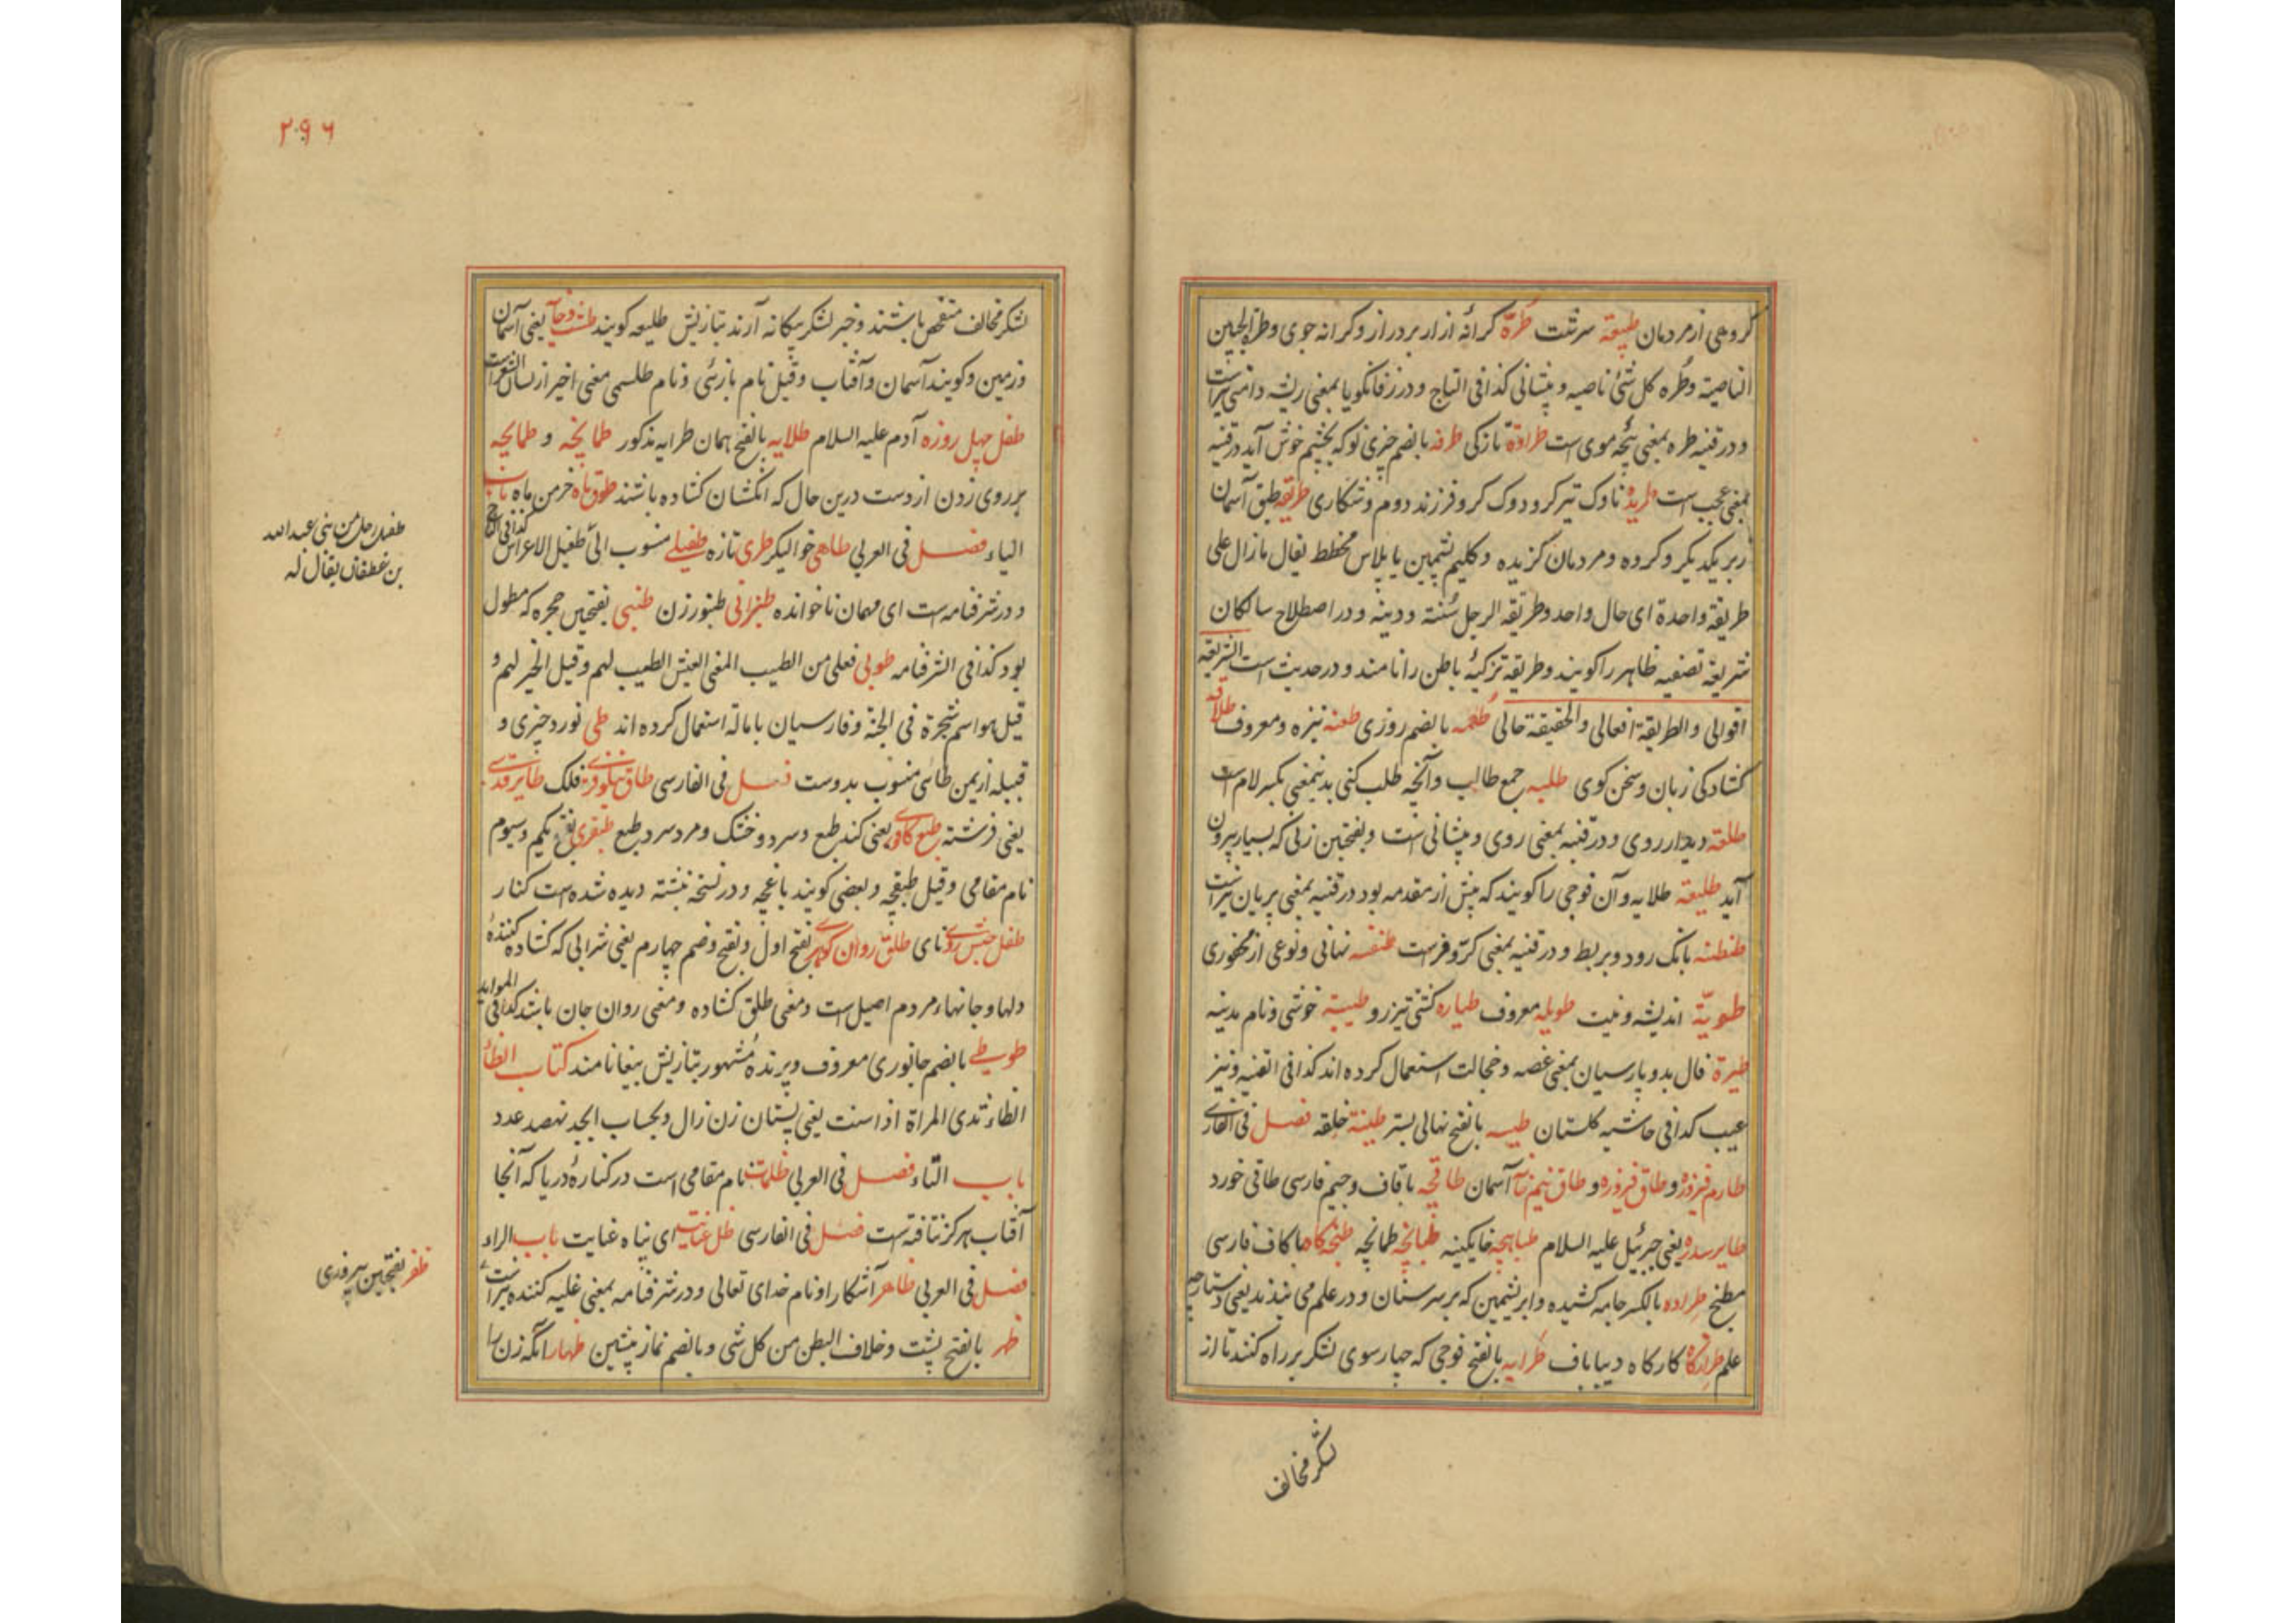 گروهی از مردمان طبیعة سرشت طرّة کرانه ازار بردراز و کرانه جوی و طرة الجبین
الناصیة و طُره کل شئ ناصیه و پیشانی کذا فی التاج و در زفانگویا بمعنی ریشه دامنی نیز است
و در قنیه طره بمعنی پنچه موی است طراوة تازکی طرفه بالضم چیزی نو که بچشم خوش آید در قنیه
بمعنی عجب است طریده ناوک تیر کرو دوک کر و فرزند دوم و شکاری طریقه طبق آسمان
زبر یکدیکر و کروه و مردمان کزیده و کلیم پشمین یا پلاس مخطط یقال مازال علی
طریقة واحدة ای حال واحد و طریقة الرجل سُنته و دینه و در اصطلاح سالکان
شریعة تصفیه ظاهر را کویند و طریقة تزکیهٔ باطن را نامند و در حدیث است الشریعة
اقوالی و الطریقة افعالی و الحقیقة حالی طُعمه بالضم روزی طعنه نیزه و معروف طلاقة
کشادکی زبان و سخن کوی طلبه جمع طالب و آنچه طلب کنی بدینمعنی بکسر لام است
طلعة دیدار روی و در قنیه بمعنی روی و پیشانی است و بفتحتین زنی که بسیار بیرون
آید طلیعة طلایه و آن فوجی را کویند که پیش از مقدمه بود در قنیه بمعنی نیز است
طنطنه بانک رود و بربط و در قنیه بمعنی کرّ و فر است طنفسه نهانی و نوعی از
طویّة اندیشه و نیت طویله معروف طیاره کشتی تیزرو طیبة خوشی و نام مدینه
طیرة فال بد و پارسیان بمعنی غصه و خجالت استعمال کرده اند کذا فی القنیه و نیز
عیب کذا فی حاشیه کلستان طیسه بالفتح نهالی بستر طینة خلقه فصل فی الفارسی
طارم فیروزه و طاق فیروزه و طاق نیم آسمان طاقچه با قاف و جیم فارسی طاقی خورد
طایر سدره یعنی جبرئیل علیه السلام طباهچه خایکینه طبانچه طمانچه طبخکاه با کاف فارسی
مطبخ طراده بالکسر جامه کشیده و ابریشمین که بر سر سنان و در علم می بندند یعنی دستارچه
علم طرازکاه کارکاه دیباباف طرایه بالفتح فوجی که چهار سوی لشکر بر راه کنند تا از
لشکر مخالف
۲۹۶
لشکر مخالف متفحص باشند و خبر لشکر بیکانه آرند بتازیش طلیعه کویند طشت و خایه یعنی آسمان
و زمین و کویند آسمان و آفتاب و قیل نام بازئی و نام طلسمی معنی اخیر از لسان الشعراست
طفل چهل روزه آدم علیه السلام طلایه بالفتح همان طرایه مذکور طپانچه و طمانچه
بر روی زدن از دست درین حال که انکشتان کشاده باشند طوق ماه خرمن ماه باب
الیاء فصل فی العربی طاهی خوالیکر طری تازه طفیلی منسوب الی طفیل الاعراس کذا فی التاج
و در شرفنامه است ای مهمان ناخوانده طنبرانی طنبور زن طنبی بفتحتین حجره که مطول
بود کذا فی الشرفنامه طوبی فعلی من الطیب المعنی العیش الطیب لهم و قیل الخیر لهم و
قیل هو اسم شجرة فی الجنة و فارسیان باماله استعمال کرده اند طی نورد چیزی و
قبیله از یمن طائی منسوب بدوست فصل فی الفارسی طاق نیلوفری فلک طایر قدسی
یعنی فرشته طبع کافوری یعنی کند طبع و سرد و خشک و مرد سرد طبع طبقری بفتح یکم و سیوم
نام مقامی و قیل طبقچه و بعضی کویند باغچه و در نسخه نبشته دیده شده است کنار
طفل حبش روی نای طلق روان کوهی بفتح اول و بفتح و ضم چهارم یعنی شرابی که کشاده کنندهٔ
دلها و جانهاء مردم اصیل است و معنی طلق کشاده و معنی روان جان باشد کذا فی الموائد
طوطی بالضم جانوری معروف و پرندهٔ مشهور بتازیش ببغا نامند کتاب الظاء
الظاء ثدی المراة اذا سنت یعنی پستان زن زال و بحساب ابجد نهصد عدد
باب التاء فصل فی العربی ظلمات نام مقامی است در کنارهٔ دریا که آنجا
آفتاب هرکز نتافته است فصل فی الفارسی ظل عنایت ای پناه عنایت باب الراء
فصل فی العربی ظاهر آشکارا و نام خدای تعالی و در شرفنامه بمعنی غلبه کننده نیز است
ظهر بالفتح پشت و خلاف البطن من کل شی و بالضم نماز پیشین ظهار آنکه زن را
طفیل رجل من بنی عبد الله
بن غطفان یقال له
ظفر بفتحتین پیروزی